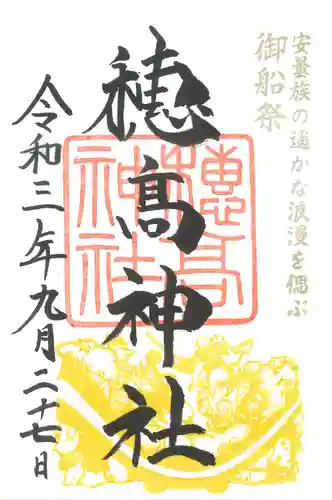 安曇族の遥かな浪漫を偲ぶ
御船祭
穂高神社
穂高神社
令和三年九月二十七日